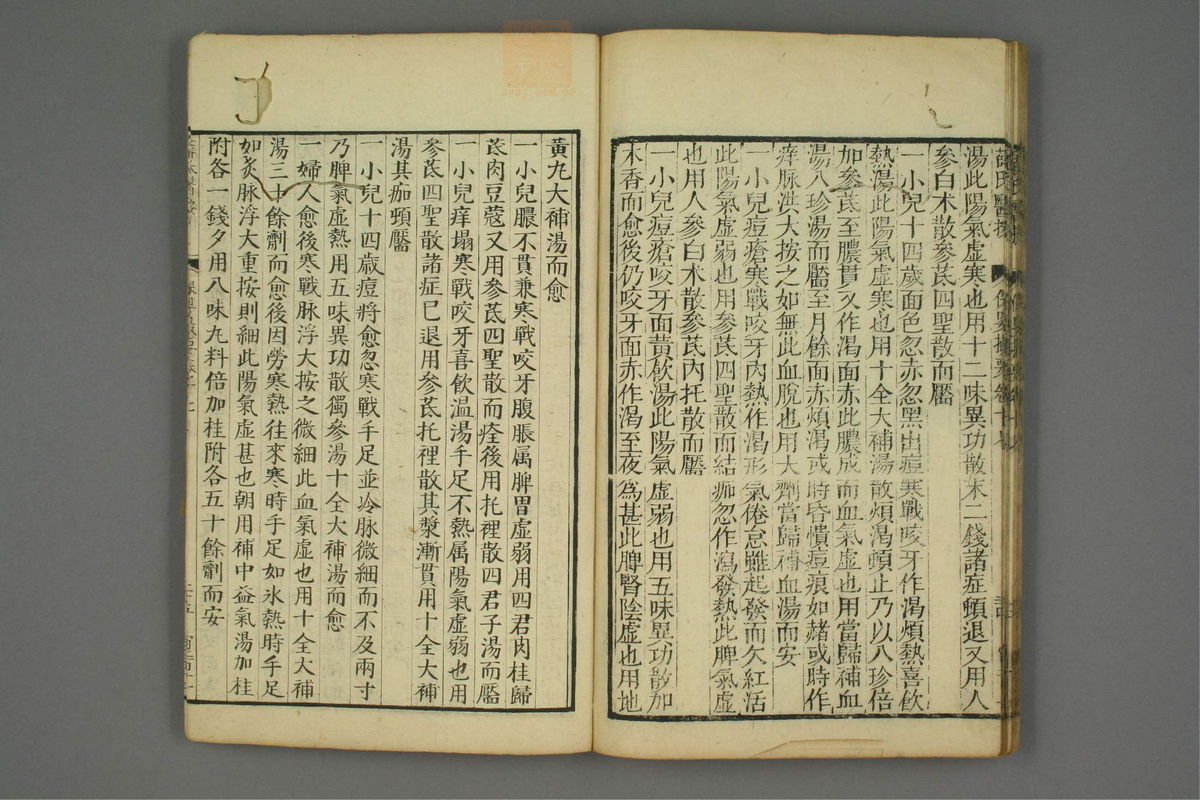 薛氏醫按 保嬰撮要卷十八
湯此陽氣虛寒也用十二味異功散末二錢諸症頓退又用人
參白朮散參芪四聖散而靨
一小兒十四歲面色忽赤忽黑出痘寒戰咬牙作渴煩熱喜飲
熱湯此陽氣虛寒也用十全大補湯散煩渴頓止乃以八珍倍
加參芪至膿貫又作渴面赤此膿成而血氣虛也用當歸補血
湯八珍湯而靨至月餘面赤煩渴或時昏憒痘痕如赭或時作
痒脉洪大按之如無此血脫也用大劑當歸補血湯而安
一小兒痘瘡寒戰咬牙內熱作渴形氣倦怠雖起發而欠紅活
此陽氣虛弱也用參芪四聖散而結痂忽作瀉發熱此脾氣虛
也用人參白朮散參芪內托散而靨
一小兒痘瘡咬牙面黃飲湯此陽氣虛弱也用五味異功散加
木香而愈後仍咬牙面赤作渴至夜為甚此脾腎陰虛也用地
黃丸大補湯而愈
一小兒膿不貫兼寒戰咬牙腹脹属脾胃虛弱用四君肉桂歸
芪肉豆蔻又用參芪四聖散而痊後用托裡散四君子湯而靨
一小兒痒塌寒戰咬牙喜飲温湯手足不熱属陽氣虛弱也用
參芪四聖散諸症已退用參芪托裡散其漿漸貫用十全大補
湯其痂頓靨
一小兒十四歲痘將愈忽寒戰手足並冷脉微細而不及兩寸
乃脾氣虛熱用五味異功散獨參湯十全大補湯而愈
一婦人愈後寒戰脉浮大按之微細此血氣虛也用十全大補
湯三十餘劑而愈後因勞寒熱往來寒時手足如氷熱時手足
如炙脉浮大重按則細此陽氣虛甚也朝用補中益氣湯加桂
附各一錢夕用八味丸料倍加桂附各五十餘劑而安